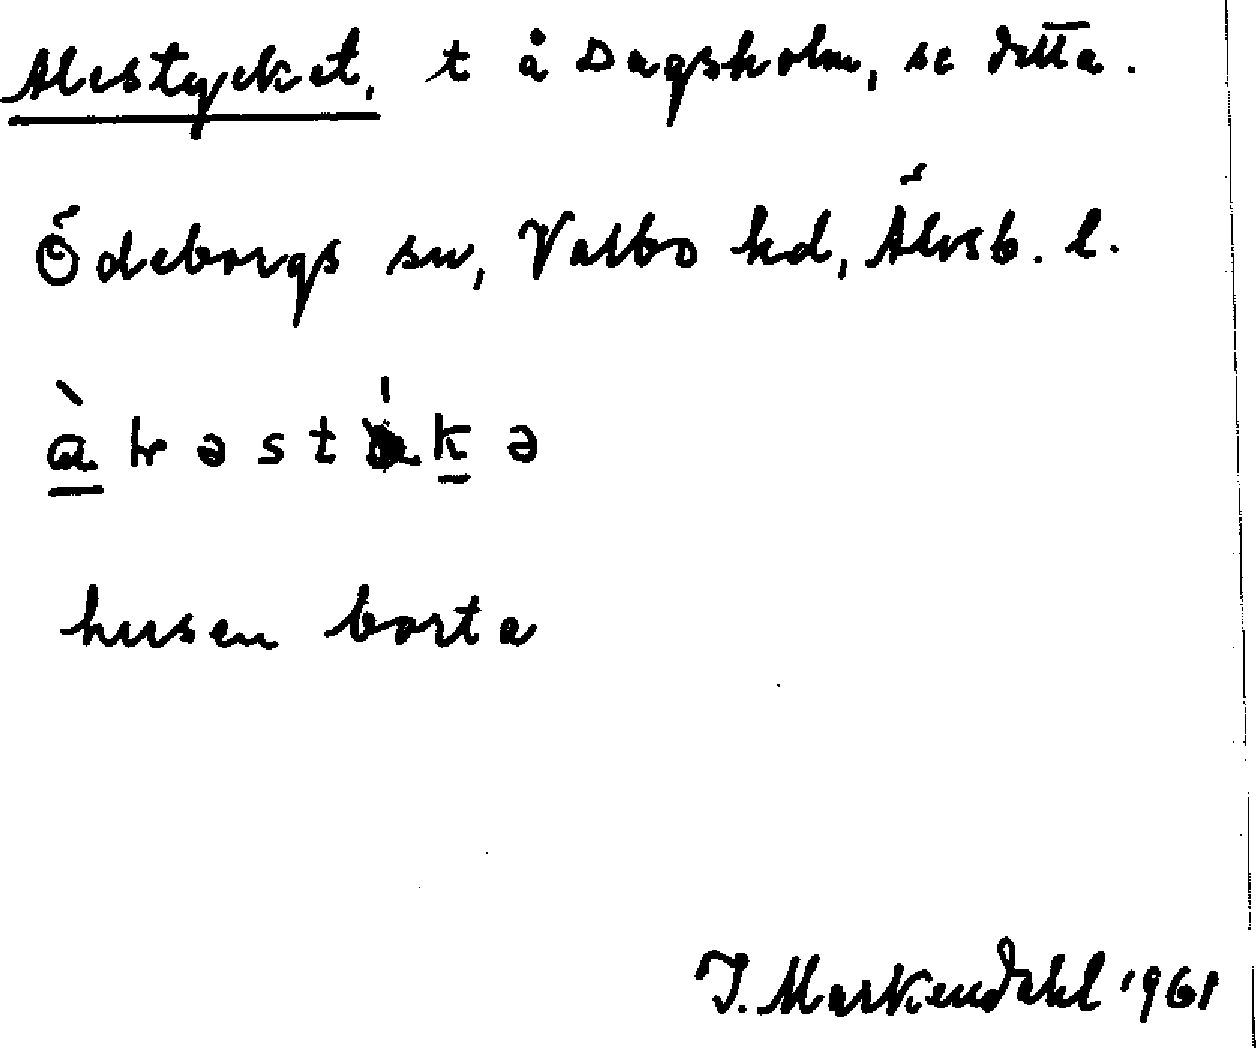 Alestycket, t å Dagsholm, se detta.
Ödeborgs sn, Valbo hd, Älvsb. l.
husen borta
I. Markendahl 1961